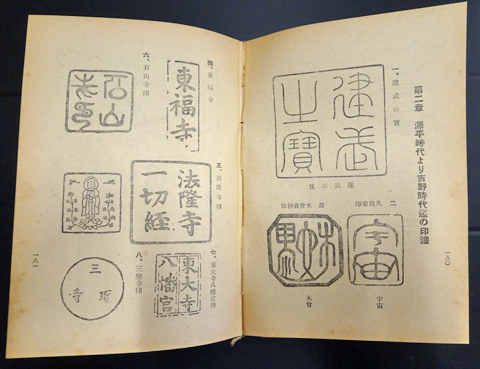 第二章 源平時代より吉野時代迄の印譜
一八〇
一、建武の寶
建武
之寶
建武の寶
二 久我家印
宇宙
宇宙
木曾義仲印
木曾
四、東福寺
東福寺
五、法隆寺印
法隆寺
一切経
六、石山寺印
石山
七、東大寺八幡宮印
東大寺
八幡宮
八、三聖寺印
三
寺
一八一